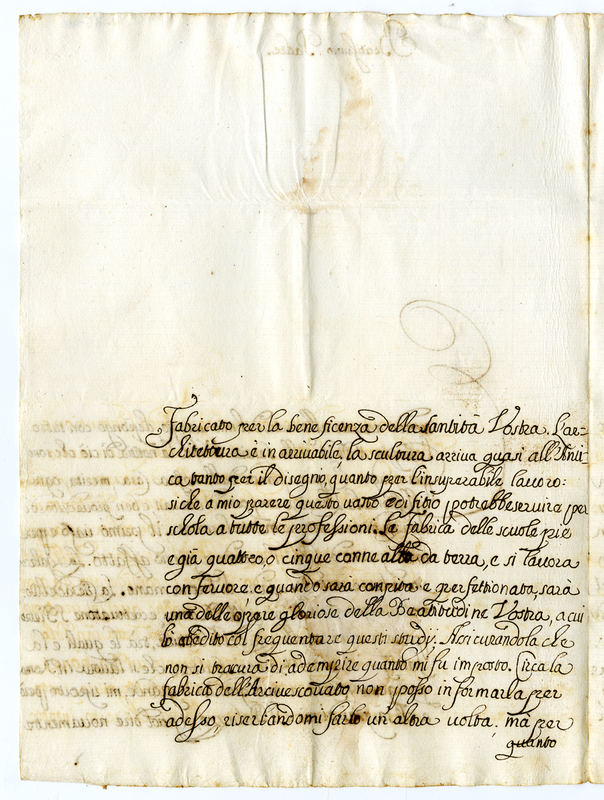 Fabricato per la beneficenza della Santità Vostra. L'ar-
chitettura è inarriuabile, la scultura arriua quasi all'Anti-
ca tanto per il disegno, quanto per l'insuperabile lauoro:
siche a mio parere questo uasto edifitio potrebbe seruire per
schola a tutte le professioni. La fabrica delle scuole pie
e già quattro, o cinque canne alta da terra, e si lauora
con feruore. e quando sarà compita e perfettionata, sarà
una delle opere gloriose della Beatitudine Vostra, a cui
col frequentare questi studij. Assicurandola che
non si trascura di adempire quanto mi fu imposto. Circa la
fabrica dell'Arciuescouato non posso informarla per
adesso, riserbandomi farlo un'altra uolta. mà per
quanto